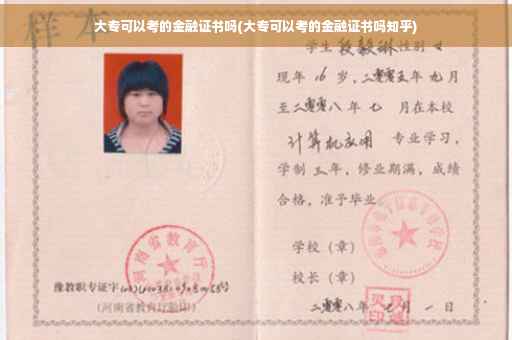 大专可以考的金融证书吗(大专可以考的金融证书吗知乎)
样本
学生 段毅琳 性别 女
现年 16 岁，二零零五年 九月
至二零零八年 七 月在本校
计算机应用 专业学习，
学制 三年，修业期满，成绩
合格，准予毕业
学校（章）
校长（章）
二零零八年 七月 一日
河南省教育厅
豫教职专证字
(河南省教育厅验印)